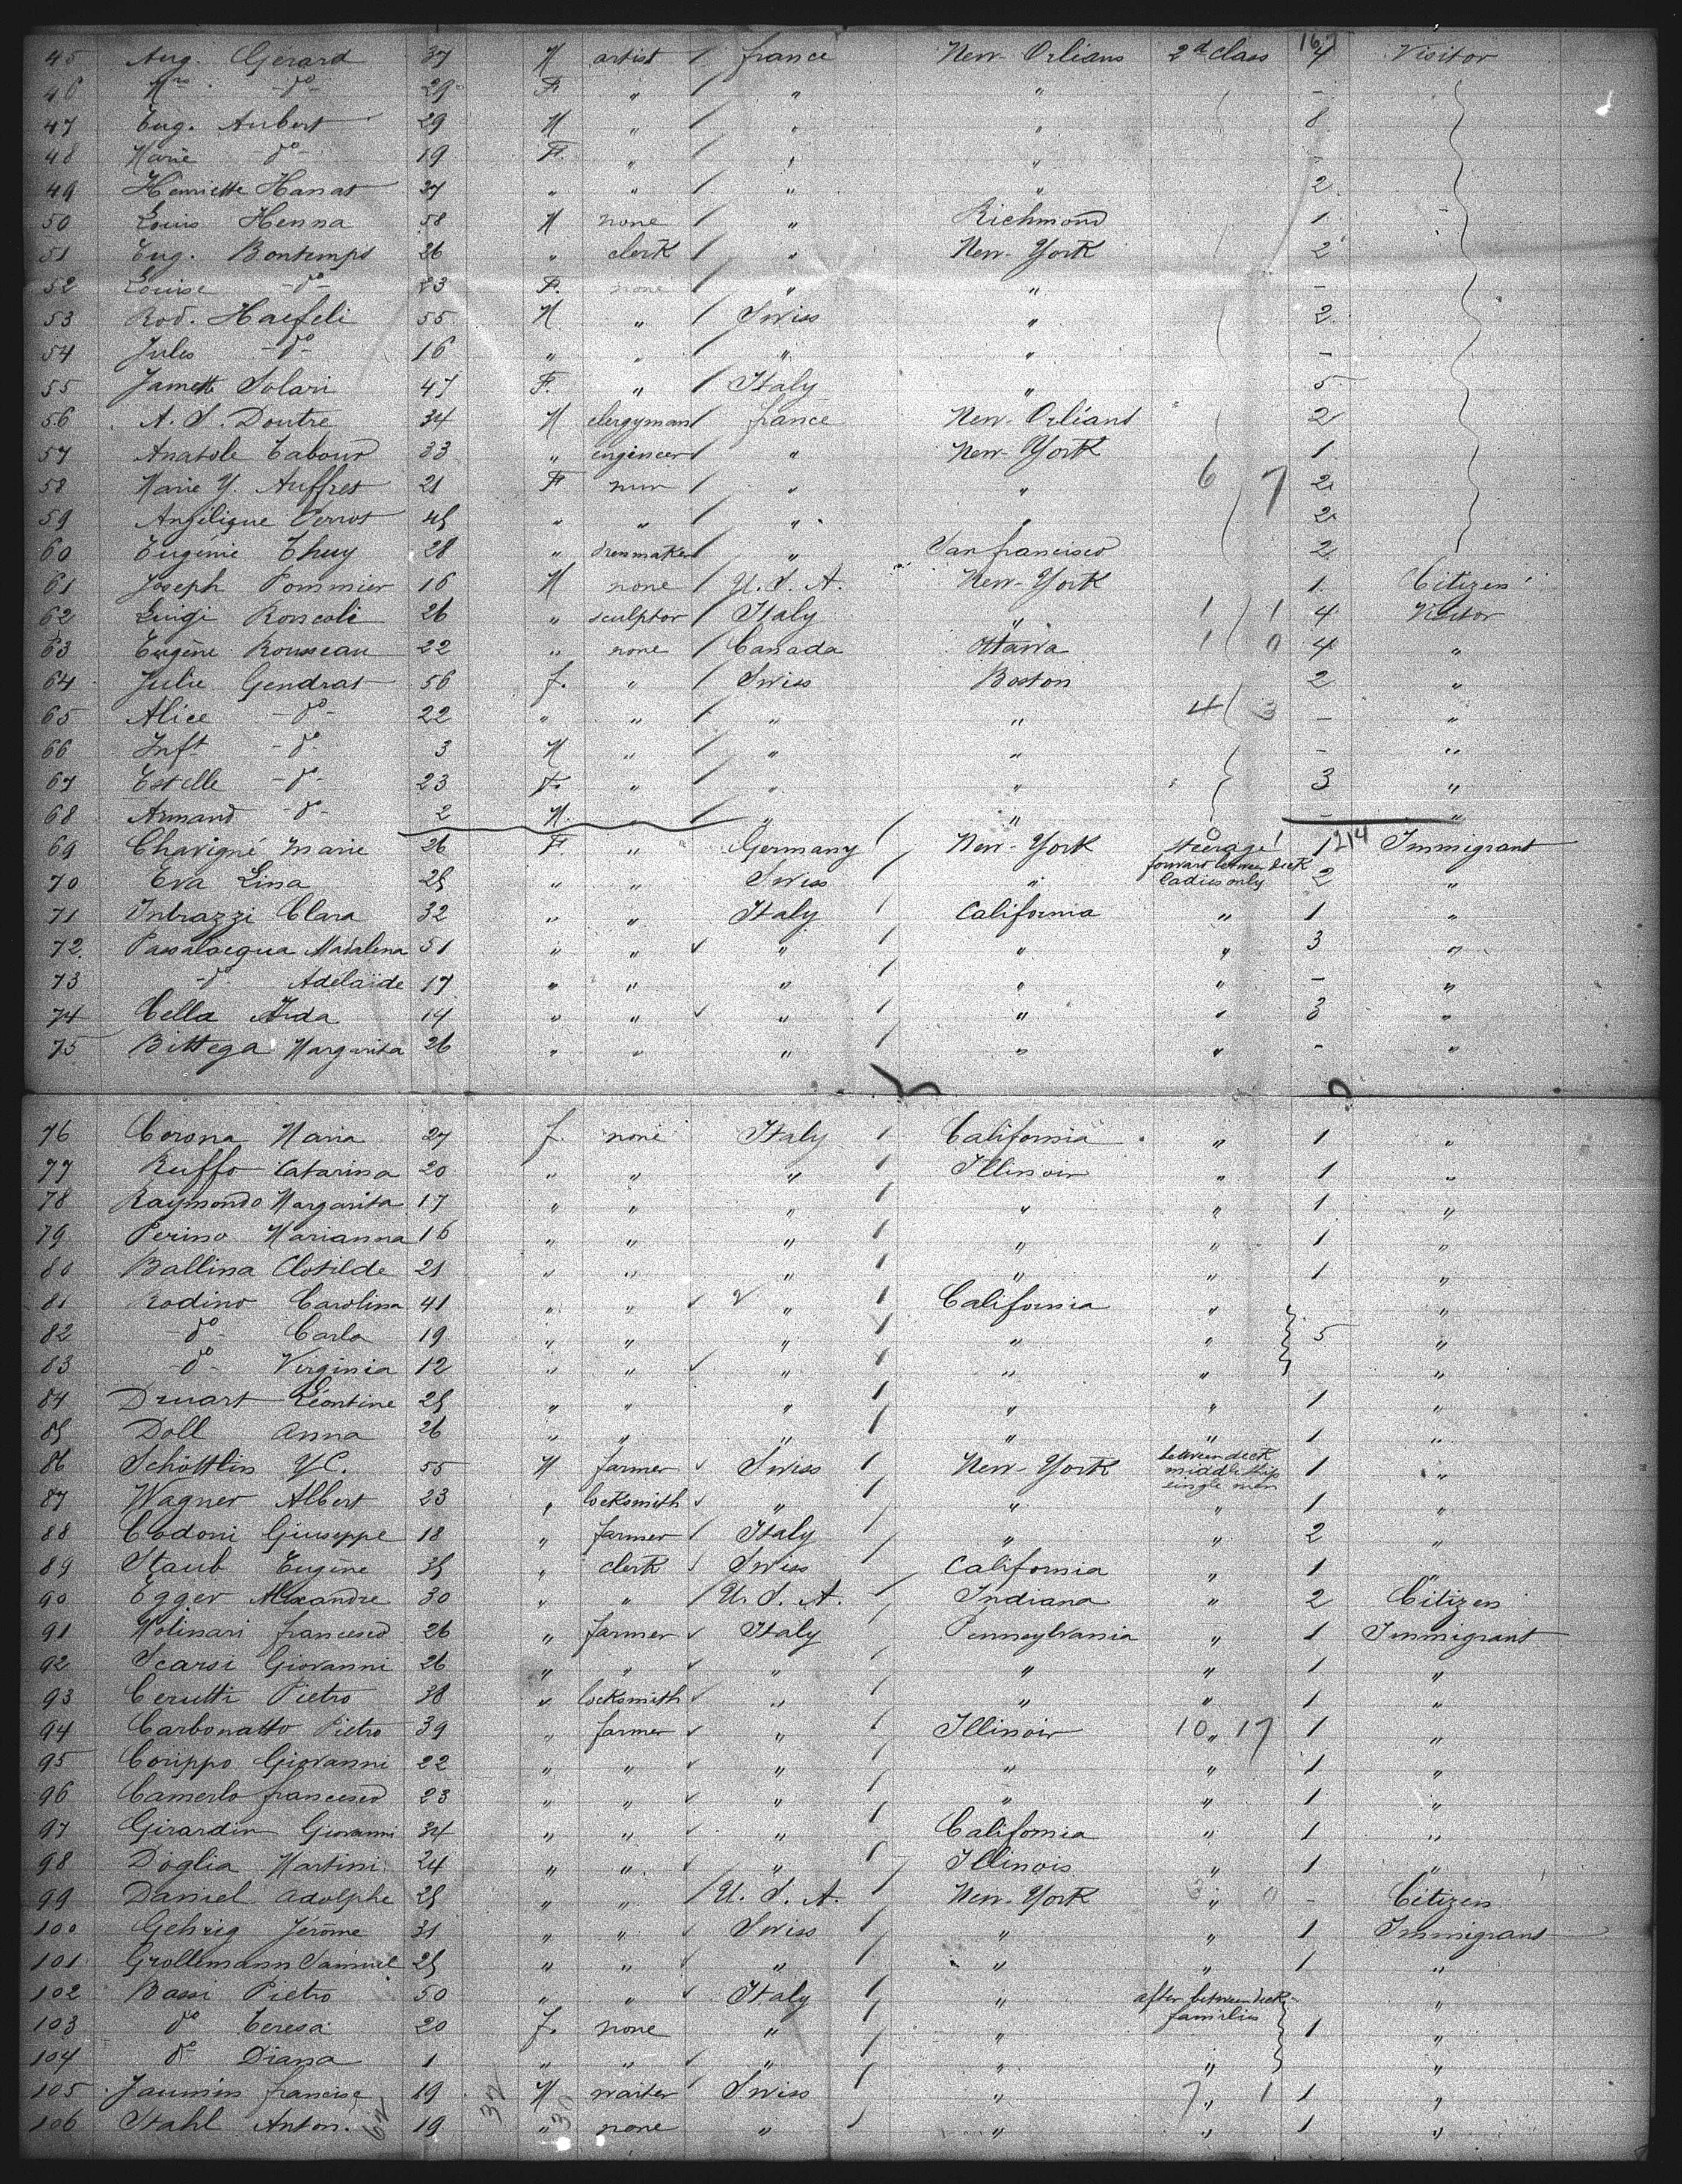 45 Aug. Gérard 37 M artist / france New-Orléans 2d class 4 Visitor
46 Mrs -do- 29 F " / " " -
47 Eug. Aubert 29 M " / " " 8
48 Marie -do- 19 F. " / " " -
49 Henriette Hanas 37 " " / " " 2
50 Louis Henna 58 M none / " Richmond 1
51 Eug. Bontemps 26 " clerk / " New-York 2
52 Louise -do- 23 F. none / " " -
53 Rod. Haefeli 55 M " / Swiss " 2
54 Jules -do- 16 " " / " " -
55 Jamette Solari 47 F. " / Italy " 5
56 A. S. Doutre 34 M clergyman / france New-Orléans 2
57 Anatole Tabourd 33 " engineer / " New-York 1
58 Marie Y. Auffret 21 F nun / " " 6 7 2
59 Angélique Perrot 45 " " / " " 2
60 Eugénie Thuy 28 " dressmaker / " San francisco 2
61 Joseph Pommier 16 M none / U. S. A. New-York 1 Citizen
62 Luigi Roncoli 26 " sculptor / Italy " 1 1 4 Visitor
63 Eugène Rousseau 22 " none / Canada Ottawa 1 0 4 "
64 Julie Gendrat 56 f. " / Swiss Boston 2 "
65 Alice -do- 22 " " / " " 4 3 - "
66 Inft -do- 3 M " / " " - "
67 Estelle -do- 23 F. " / " " 3 "
68 Armand -do- 2 M. " / " " - "
69 Chavigné Marie 26 F. " Germany / New-York steerage 1 214 Immigrant
forward between deck
70 Eva Lina 25 " " Swiss / " Ladies only 2 "
71 Intrazzi Clara 32 " " Italy / California " 1 "
72. Passalacqua Madalena 51 " " ✓ " / " " 3 "
73 -do- Adélaïde 17 " " " / " " - "
74 Cella Aida 14 " " ✓ " / " " 3 "
75 Bittega Margarita 26 " " " / " " - "
76 Corona Maria 27 f. none Italy / California " 1 "
77 Ruffo Catarina 20 " " " / Illinois " 1 "
78 Raymondo Margarita 17 " " " / " " 1 "
79 Perino Marianna 16 " " " / " " 1 "
80 Ballina Clotilde 21 " " " / " " 1 "
81 Rodino Carolina 41 " " ✓ " / California " "
82 -do- Carlo 19 " " " / " " 5 "
83 -do- Virginia 12 " " ✓ " / " " "
84 Druart Léontine 25 " " " / " " 1 "
85 Doll Anna 26 " " " / " " 1 "
86 Schöttlin 55 M farmer ✓ Swiss / New-York between deck 1 "
middle ship
single men
87 Wagner Albert 23 " locksmith ✓ " / " " 1 "
88 Codoni Giuseppe 18 " farmer / Italy / " " 2 "
89 Staub Eugène 35 " clerk ✓ Swiss California " 1 "
90 Egger Alexandre 30 " " / U. S. A. / Indiana " 2 Citizen
91 Molinari francesco 26 " farmer ✓ Italy Pennsylvania " 1 Immigrant
92 Scarsi Giovanni 26 " " ✓ " / " " 1 "
93 Cerutti Pietro 38 " locksmith ✓ " / " " 1 "
94 Carbonatto Pietro 39 " farmer ✓ " / Illinois 10 " 17 1 "
95 Corippo Giovanni 22 " " ✓ " / " " 1 "
96 Camerlo francesco 23 " " ✓ " / " " 1 "
97 Girardin Giovanni 34 " " ✓ " / California " 1 "
98 Doglia Martini 24 " " ✓ " / Illinois " 1 "
99 Daniel Adolphe 25 " " / U. S. A. / New-York " 0 - Citizen
100 Gehrig Jérôme 31 " " ✓ Swiss / " " 1 Immigrant
101 Grollemann Samuel 25 " " ✓ " / " " 1 "
102 Bassi Pietro 50 " " ✓ Italy / " after between deck "
families
103 do Teresa 20 f. none " / " 1 "
104 do Diana 1 " " ✓ " / " " "
105 Jaumin francisc 19 M waiter ✓ Swiss / " 7 " 1 1 "
106 Stahl Anton. 19 " none " / " " 1 "
62 32 30